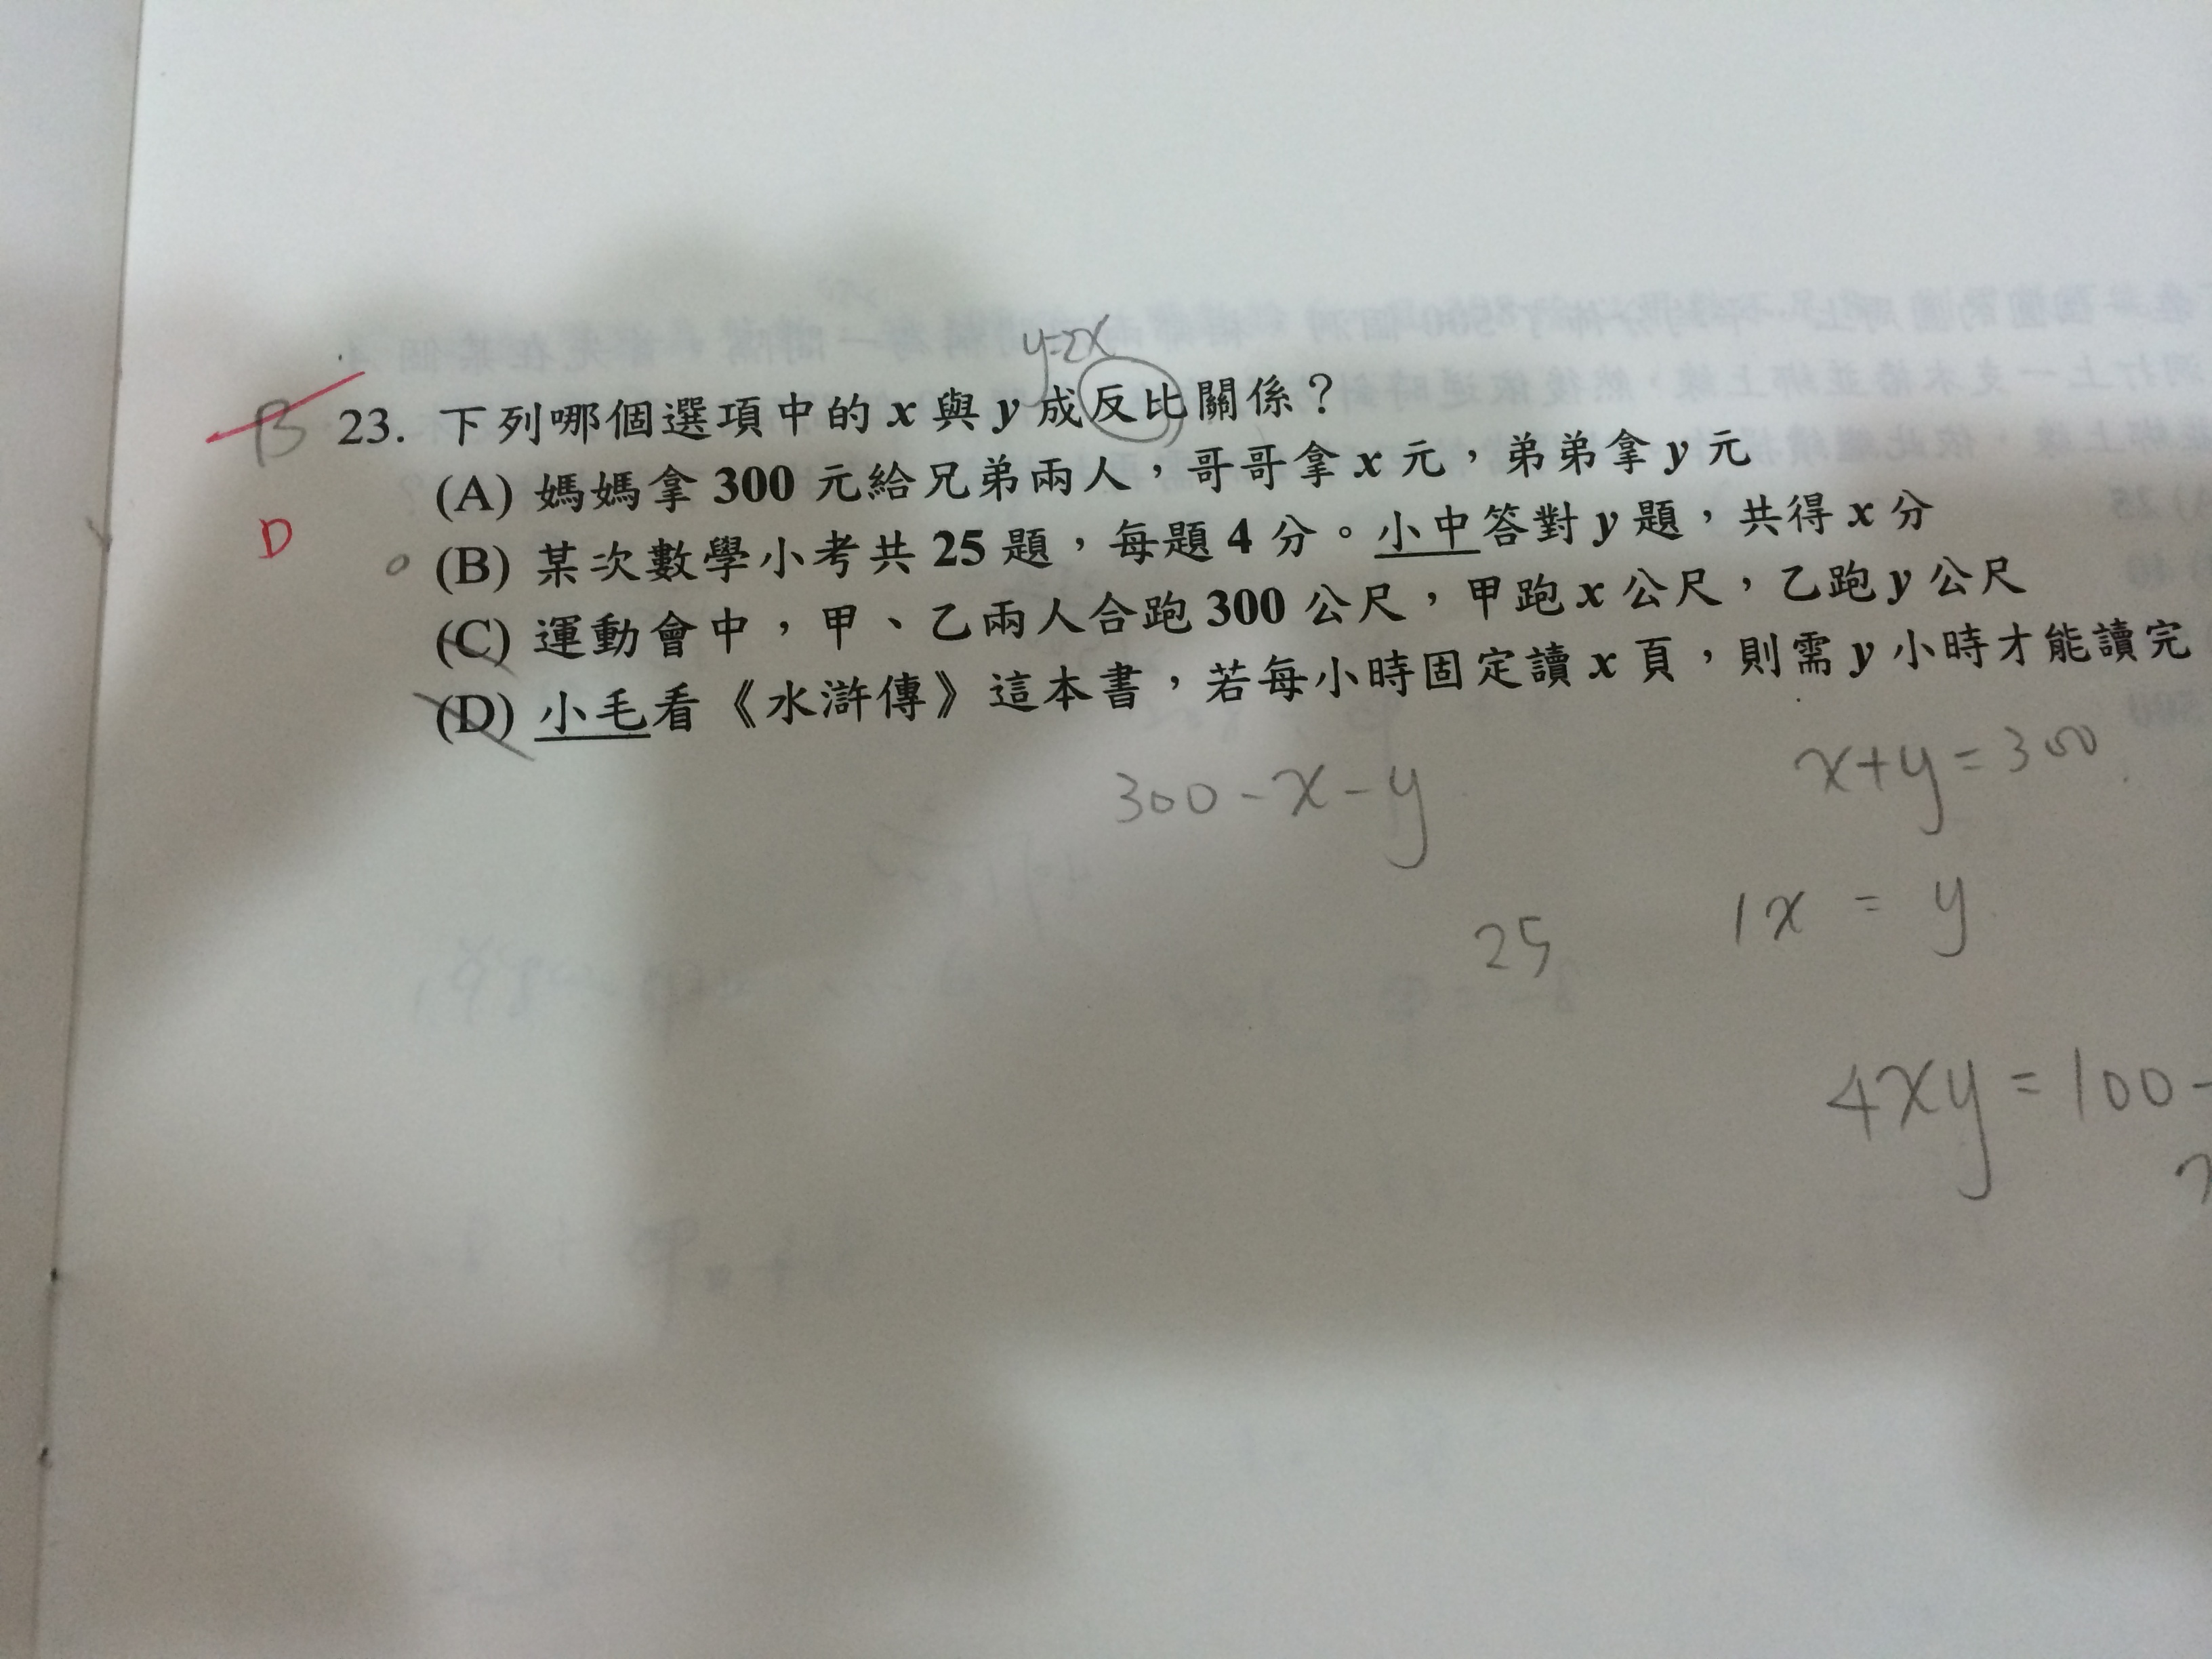 y=2x
B 23. 下列哪個選項中的 x 與 y 成反比關係？
(A) 媽媽拿 300 元給兄弟兩人，哥哥拿 x 元，弟弟拿 y 元
D (B) 某次數學小考共 25 題，每題 4 分。小中答對 y 題，共得 x 分
(C) 運動會中，甲、乙兩人合跑 300 公尺，甲跑 x 公尺，乙跑 y 公尺
(D) 小毛看《水滸傳》這本書，若每小時固定讀 x 頁，則需 y 小時才能讀完
300-x-y
x+y=300
25
1x = y
4xy=100-